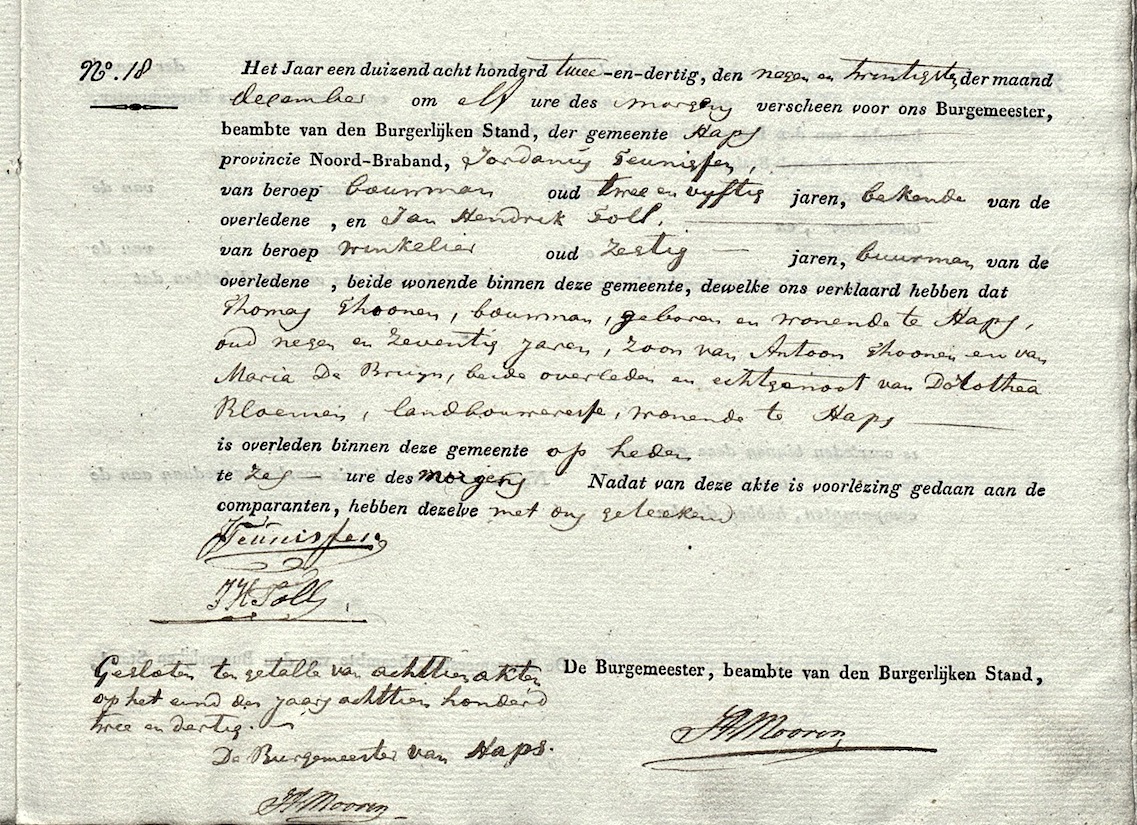 No. 18
Het Jaar een duizend acht honderd twee-en-dertig, den negen en twintigste, der maand
december om elf ure des morgens verscheen voor ons Burgemeester,
beambte van den Burgerlijken Stand, der gemeente Haps
provincie Noord-Braband, Jordanus Teunissen,
van beroep bouwman oud twee en vyftig jaren, bekende van de
overledene, en Jan Hendrik Toll,
van beroep winkelier oud zestig jaren, buurman van de
overledene, beide wonende binnen deze gemeente, dewelke ons verklaard hebben dat
Thomas Thoonen, bouwman, geboren en wonende te Haps,
oud negen en zeventig jaren, zoon van Antoon Thoonen en van
Maria De Bruyn, beide overleden en echtgenoot van Dorothea
Bloemen, landbouweresse, wonende te Haps
is overleden binnen deze gemeente op heden
te zes ure des morgens Nadat van deze akte is voorlézing gedaan aan de
comparanten, hebben dezelve met ons geteekend
JTeunissen
JHToll
Gesloten ten getalle van achttien akten
op het eind des jaars achttien honderd
twee en dertig.
De Burgemeester van Haps.
Mooren
De Burgemeester, beambte van den Burgerlijken Stand,
Mooren